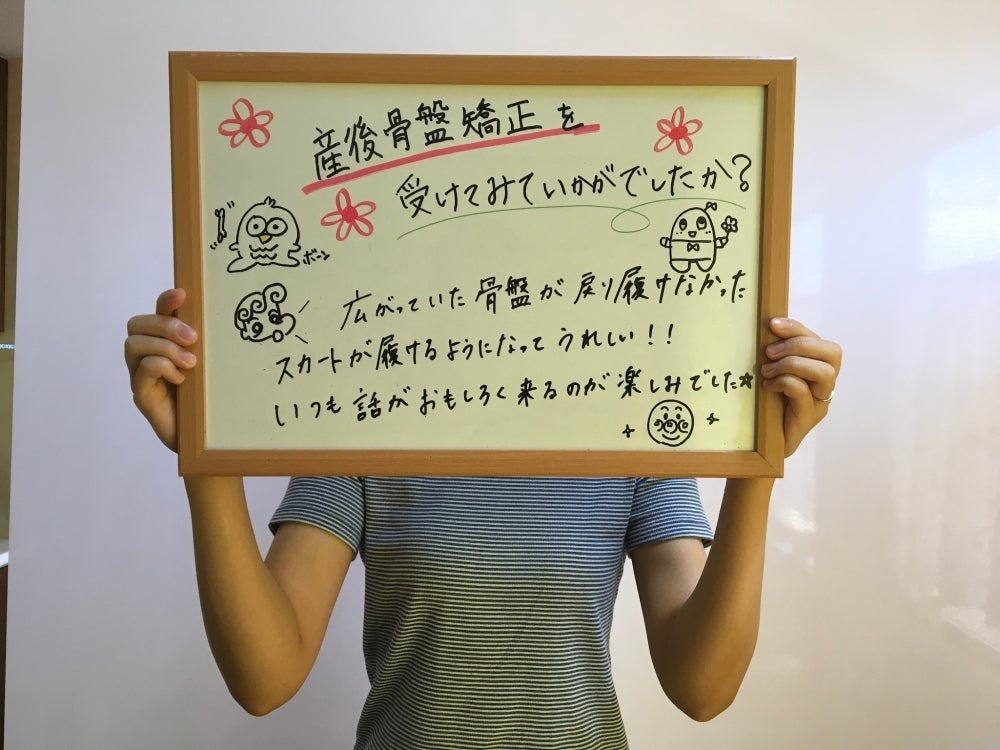 産後骨盤矯正を
受けてみていかがでしたか?
ボーン
広がっていた骨盤が戻り履けなかった
スカートが履けるようになってうれしい!!
いつも話がおもしろく来るのが楽しみでした☆